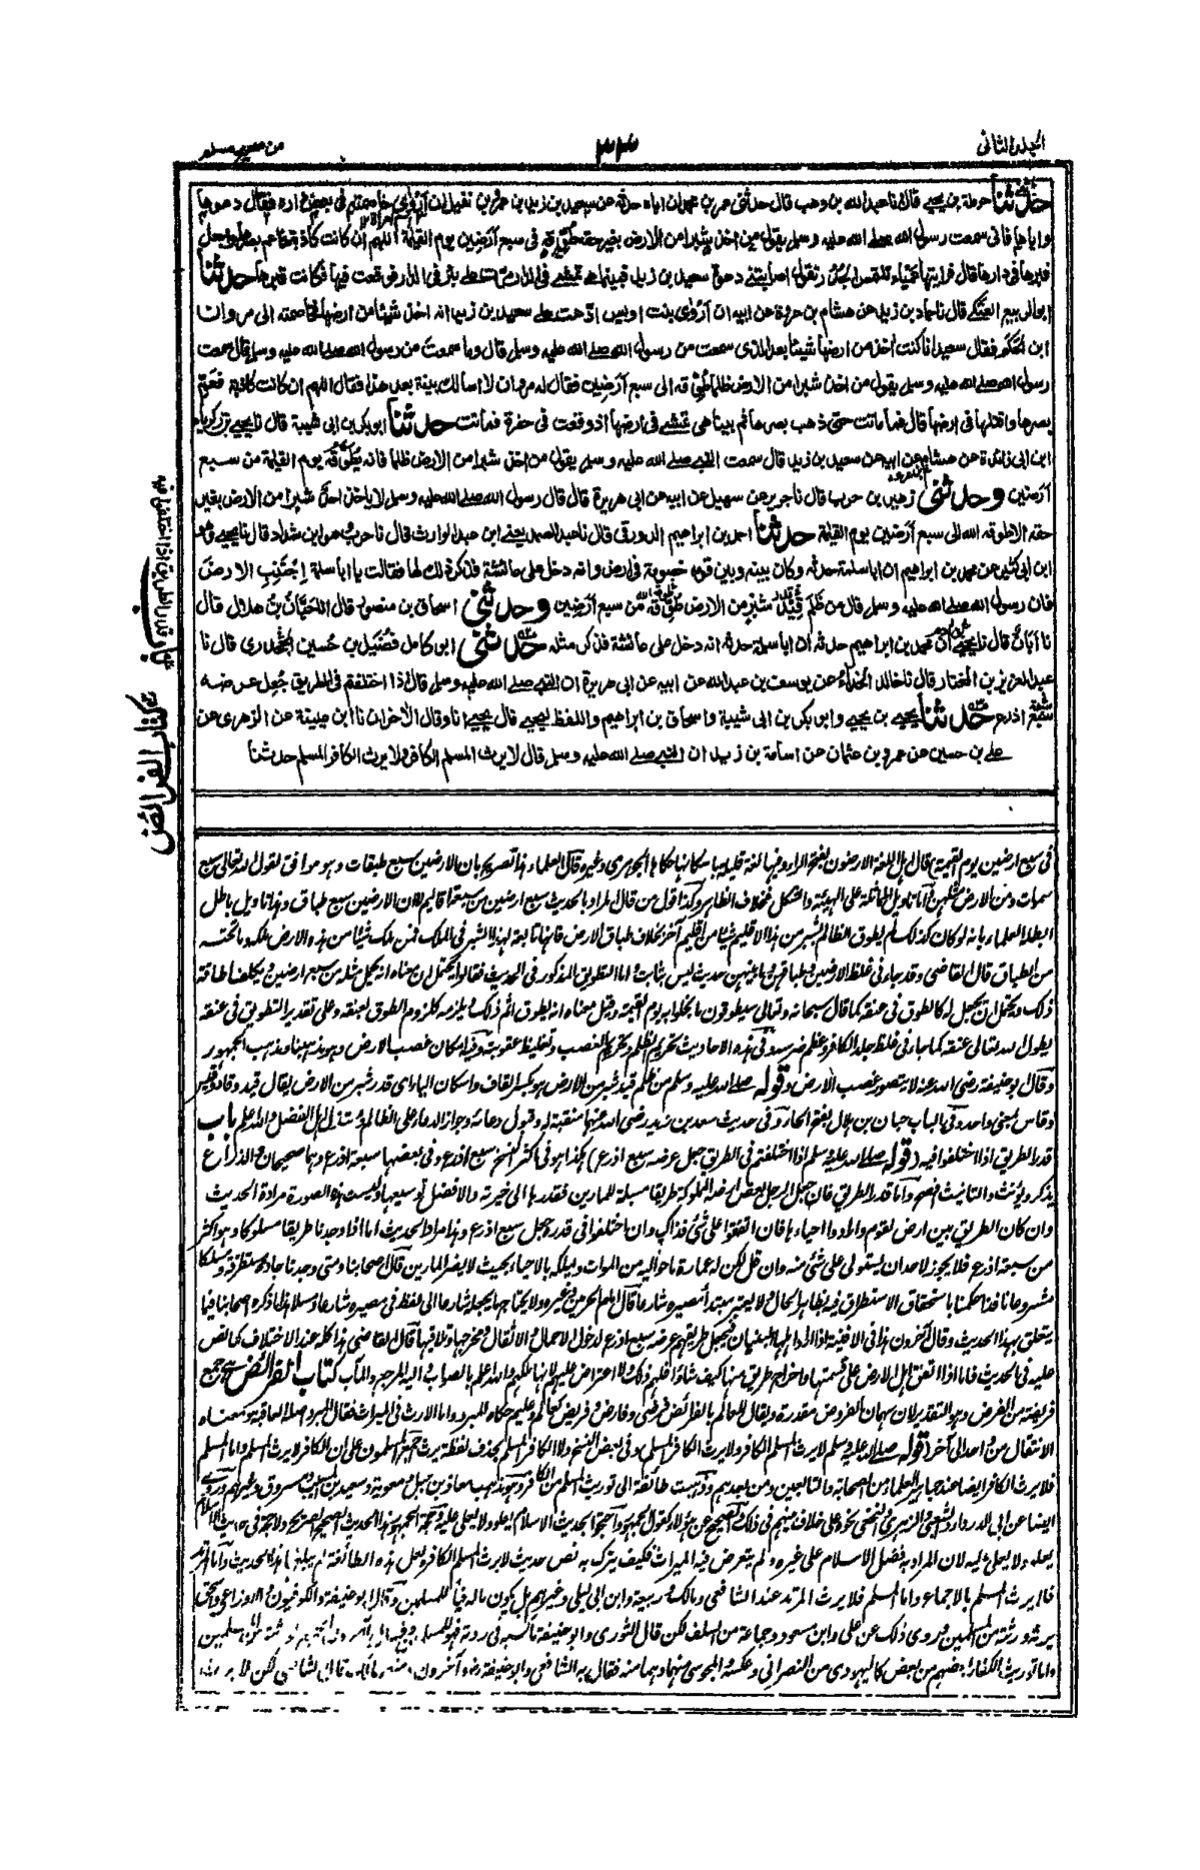 المجلد الثاني
٣٣
من صحيح مسلم
حدثنا حرملة بن يحيى قال انا عبد الله بن وهب قال حدثني عمر بن محمد ان اباه حدثه عن سعيد بن زيد بن عمرو بن نفيل ان أروى خاصمته في بعض داره فقال دعوها
واياها فاني سمعت رسول الله صلى الله عليه وسلم يقول من اخذ شبرا من الارض بغير حقه طوقه في سبع أرضين يوم القيمة اللهم ان كانت كاذبة فاعم بصرها واجعل
قبرها في دارها قال فرايتها عمياء تلتمس الجدر تقول اصابتني دعوة سعيد بن زيد فبينما هي تمشي في الدار مرت على بئر في الدار فوقعت فيها فكانت قبرها حدثنا
ابو الربيع العتكي قال نا حماد بن زيد عن هشام بن عروة عن ابيه ان أروى بنت اويس ادعت على سعيد بن زيد انه اخذ شيئا من ارضها فخاصمته الى مروان
ابن الحكم فقال سعيد انا كنت اخذ من ارضها شيئا بعد الذي سمعت من رسول الله صلى الله عليه وسلم قال وما سمعت من رسول الله صلى الله عليه وسلم قال سمعت
رسول الله صلى الله عليه وسلم يقول من اخذ شبرا من الارض ظلما طوقه الى سبع أرضين فقال له مروان لا اسالك بينة بعد هذا فقال اللهم ان كانت كاذبة فعم
بصرها واقتلها في ارضها قال فما ماتت حتى ذهب بصرها ثم بينا هي تمشي في ارضها اذ وقعت في حفرة فماتت حدثنا ابو بكر بن ابي شيبة قال نا يحيى بن زكرياء
ابن ابي زائدة عن هشام عن ابيه عن سعيد بن زيد قال سمعت النبي صلى الله عليه وسلم يقول من اخذ شبرا من الارض ظلما فانه يطوقه يوم القيمة من سبع
أرضين وحدثني زهير بن حرب قال نا جرير عن سهيل عن ابيه عن ابي هريرة قال قال رسول الله صلى الله عليه وسلم لا ياخذ احد شبرا من الارض بغير
حقه الا طوقه الله الى سبع أرضين يوم القيمة حدثنا احمد بن ابراهيم الدورقي قال نا عبد الصمد يعني ابن عبد الوارث قال نا حرب وهو ابن شداد قال نا يحيى وهو
ابن ابي كثير عن محمد بن ابراهيم ان ابا سلمة حدثه وكان بينه وبين قومه خصومة في ارض وانه دخل على عائشة فذكر ذلك لها فقالت يا ابا سلمة اجتنب الارض
فان رسول الله صلى الله عليه وسلم قال من ظلم قيد شبر من الارض طوقه من سبع أرضين وحدثني اسحاق بن منصور قال انا حبان بن هلال قال
نا أبان قال نا يحيى ان محمد بن ابراهيم حدثه ان ابا سلمة حدثه انه دخل على عائشة فذكر مثله حدثني ابو كامل فضيل بن حسين الجحدري قال نا
عبد العزيز بن المختار قال نا خالد الحذاء عن يوسف بن عبد الله عن ابيه عن ابي هريرة ان النبي صلى الله عليه وسلم قال اذا اختلفتم في الطريق جعل عرضه
سبع اذرع حدثنا يحيى بن يحيى وابو بكر بن ابي شيبة واسحاق بن ابراهيم واللفظ ليحيى قال يحيى انا وقال الاخران نا ابن عيينة عن الزهري عن
علي بن حسين عن عمرو بن عثمان عن اسامة بن زيد ان النبي صلى الله عليه وسلم قال لا يرث المسلم الكافر ولا يرث الكافر المسلم حدثنا
كتاب الفرائض
في سبع ارضين يوم القيمة قال اهل اللغة الارضون بفتح الراء وفيها لغة قليلة باسكانها حكاها الجوهري وغيره قال العلماء هذا تصريح بان الارضين سبع طبقات وهو موافق لقول الله تعالى سبع
سموات ومن الارض مثلهن اما تاويل المماثلة على الهيئة والشكل فخلاف الظاهر وكذا قول من قال المراد بالحديث سبع ارضين من سبعة اقاليم لا ان الارضين سبع طباق وهذا تاويل باطل
ابطله العلماء بانه لو كان كذلك لم يطوق الظالم بشبر من هذا الاقليم شيئا من اقليم آخر بخلاف طباق الارض فانها تابعة لهذا الشبر في الملك فمن ملك شيئا من هذه الارض ملكه وما تحته
من الطباق قال القاضي وقد جاء في غلظ الارضين وطباقهن وما بينهن حديث ليس بثابت واما التطويق المذكور في الحديث فقالوا يحتمل ان معناه انه يحمل مثله من سبع ارضين ويكلف اطاقة
ذلك ويحتمل ان يجعل له كالطوق في عنقه كما قال سبحانه وتعالى سيطوقون ما بخلوا به يوم القيمة وقيل معناه انه يطوق اثم ذلك ويلزمه كلزوم الطوق لعنقه وعلى تقدير التطويق في عنقه
يطول الله تعالى عنقه كما جاء في غلظ جلد الكافر وعظم ضرسه وفي هذه الاحاديث تحريم الظلم وتحريم الغصب وتغليظ عقوبته وفيه امكان غصب الارض وهو مذهبنا ومذهب الجمهور
وقال ابو حنيفة رضي الله عنه لا يتصور غصب الارض وقوله صلى الله عليه وسلم من ظلم قيد شبر من الارض هو بكسر القاف واسكان الياء اي قدر شبر من الارض يقال قيد وقاد وقيس
وقاس بمعنى واحد وفي الباب حبان بن هلال بفتح الحاء وفي حديث سعيد بن زيد رضي الله عنهما منقبة له وقبول دعائه وجواز الدعاء على الظالم ومستذل اهل الفضل والله اعلم باب
قدر الطريق اذا اختلفوا فيه (قوله صلى الله عليه وسلم اذا اختلفتم في الطريق جعل عرضه سبع اذرع) هكذا هو في اكثر النسخ سبع اذرع وفي بعضها سبعة اذرع وهما صحيحان والذراع
يذكر ويؤنث والتانيث افصح واما قدر الطريق فان جعل الرجل بعض ارضه المملوكة طريقا مسبلة للمارين فقدرها الى خيرته والافضل توسيعها وليست هذه الصورة مرادة الحديث
وان كان الطريق بين ارض لقوم وارادوا احياءها فان اتفقوا على شئ فذاك وان اختلفوا في قدره جعل سبع اذرع وهذا مراد الحديث اما اذا وجدنا طريقا مسلوكا وهو اكثر
من سبعة اذرع فلا يجوز لاحد ان يستولي على شئ منه وان قل لكن له عمارة ما حواليه من الموات ويملكه بالاحياء بحيث لا يضر المارين قال اصحابنا ومتى وجدنا جادة مستطرقة ومسلكا
مشروعا نافذا حكمنا باستحقاق الاستطراق فيه بظاهر الحال ولا يعتبر مبتدأ مصيره شارعا قال امام الحرمين وغيره ولا يحتاج ما يجعله شارعا الى لفظ في مصيره شارعا ومسبلا هذا ما ذكره اصحابنا فيما
يتعلق بهذا الحديث وقال آخرون هذا في الافنية اذا اراد اهلها البنيان فيجعل طريقهم عرضه سبع اذرع لدخول الاحمال والاثقال ومخرجها وتلاقيها قال القاضي هذا كله عند الاختلاف كما نص
عليه في الحديث فاما اذا اتفق اهل الارض على قسمتها واخراج طريق منها كيف شاؤا فلهم ذلك ولا اعتراض عليهم لانها ملكهم والله اعلم بالصواب واليه المرجع والمآب كتاب الفرائض هي جمع
فريضة من الفرض وهو التقدير لان سهمان الفروض مقدرة ويقال للعالم بالفرائض فرضي وفارض وفريض كعالم وعليم حكاه المبرد واما الارث في الميراث فقال المبرد اصله العاقبة ومعناه
الانتقال من واحد الى آخر (قوله صلى الله عليه وسلم لا يرث المسلم الكافر ولا يرث الكافر المسلم) وفي بعض النسخ ولا الكافر المسلم بحذف لفظة يرث اجمع المسلمون على ان الكافر لا يرث المسلم واما المسلم
فلا يرث الكافر ايضا عند جماهير العلماء من الصحابة والتابعين ومن بعدهم وذهبت طائفة الى توريث المسلم من الكافر وهو مذهب معاذ بن جبل ومعوية وسعيد بن المسيب ومسروق وغيرهم وروي
ايضا عن ابي الدرداء والشعبي والزهري والنخعي نحوه على خلاف بينهم في ذلك والصحيح عن هؤلاء كقول الجمهور واحتجوا بحديث الاسلام يعلو ولا يعلى عليه وحجة الجمهور هذا الحديث الصحيح الصريح ولا حجة في حديث الاسلام
يعلو ولا يعلى عليه لان المراد به فضل الاسلام على غيره ولم يتعرض فيه لميراث فكيف يترك به نص حديث لا يرث المسلم الكافر ولعل هذه الطائفة لم يبلغها هذا الحديث واما المرتد
فلا يرث المسلم بالاجماع واما المسلم فلا يرث المرتد عند الشافعي ومالك وربيعة وابن ابي ليلى وغيرهم بل يكون ماله فيئا للمسلمين وقال ابو حنيفة والكوفيون والاوزاعي واسحق
يرثه ورثته من المسلمين وروي ذلك عن علي وابن مسعود وجماعة من السلف لكن قال الثوري وابو حنيفة ما كسبه في ردته فهو للمسلمين
واما توريث الكفار بعضهم من بعض كاليهودي من النصراني وعكسه والمجوسي منهما وهما منه فقال به الشافعي وابو حنيفة وآخرون ومنعه مالك قال الشافعي لكن لا يرث